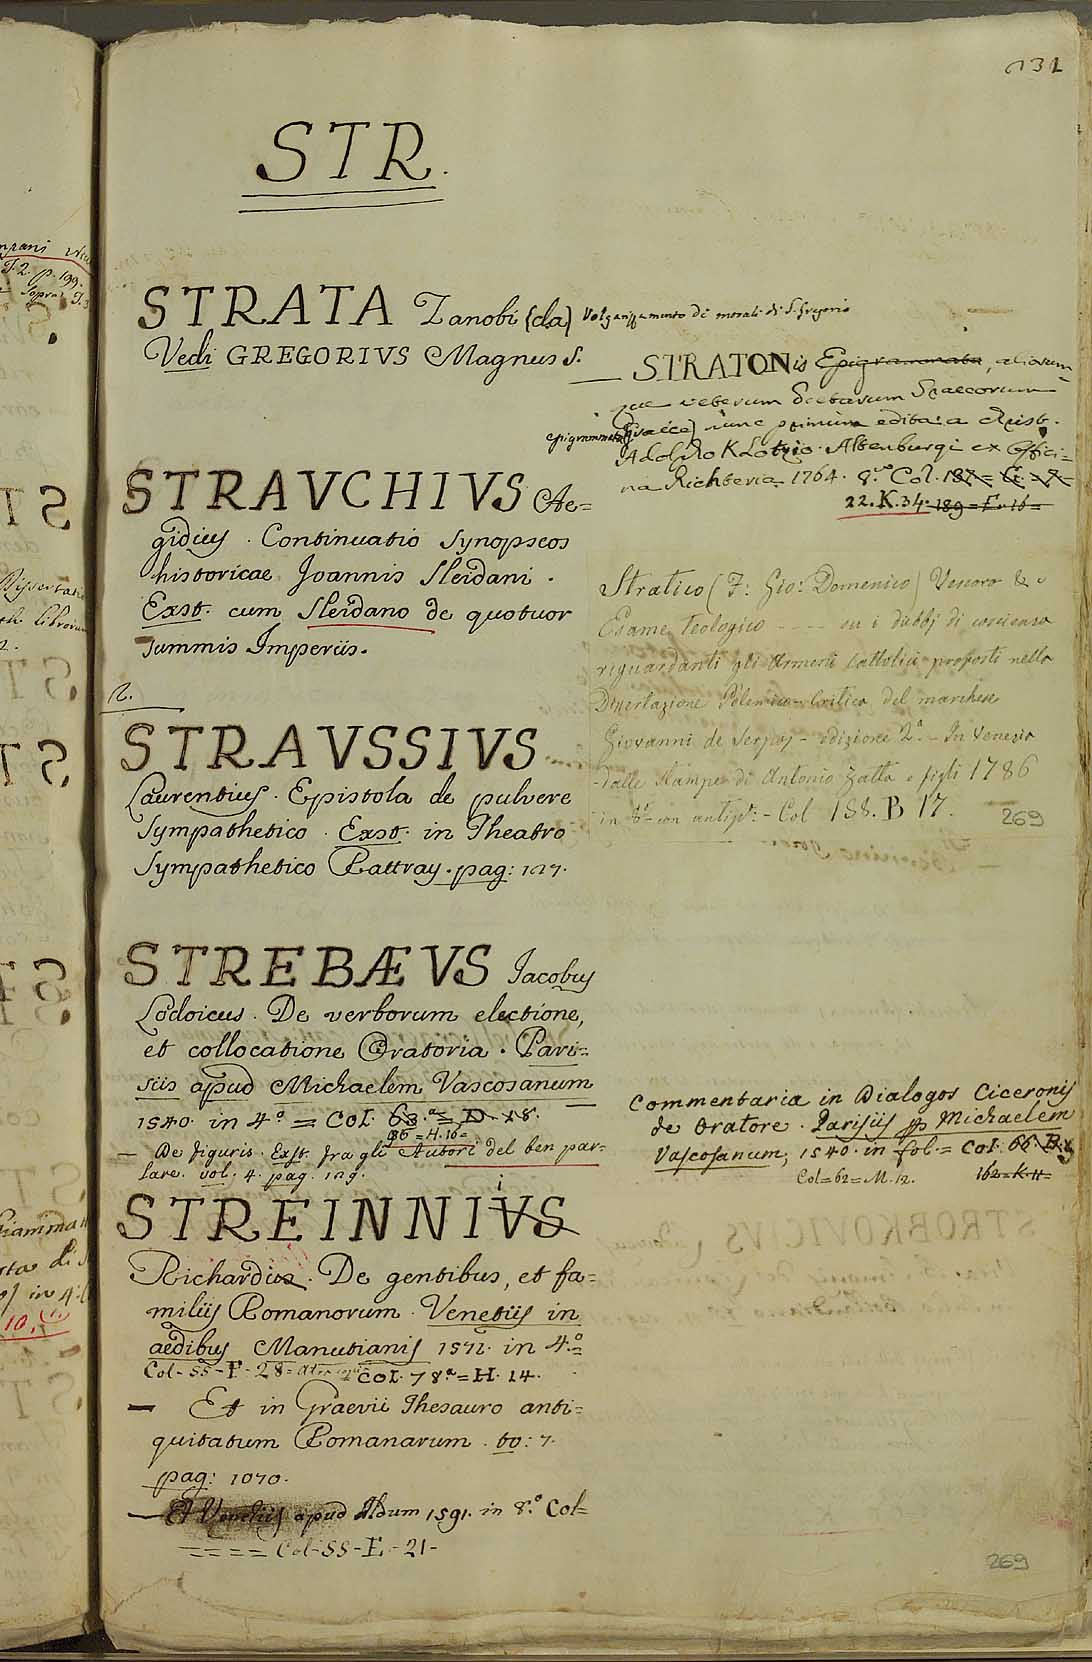 131
STR.
STRATA Zanobi (da) Volgarizzamento di morali di S. Gregorio
Vedi GREGORIVS Magnus S.
— STRATONis Epigrammata, aliorum
que veterum Poetarum Graecorum
epigrammata (Graece) nunc primum edita a Christ.
Adolpho Klotzio. Altenburgi ex Offici=
na Richteria. 1764. 8.vo Col.
22.K.34. 189=F.16=
STRAVCHIVS Ae=
gidius. Continuatio Synopseos
historicae Joannis Sleidani.
Exst. cum Sleidano de quotuor
summis Imperiis.
Stratico (F: Gio: Domenico) Vescovo &
Esame Teologico ---- su i dubbj di coscienza
riguardanti gli Armeni Cattolici proposti nella
Dissertazione Polemico-Critica del marchese
Giovanni de Serpos - edizione 2.a - In Venezia
dalle stampe di Antonio Zatta e figli 1786
in 8.o con antip.: - Col 158. B 17.
269
2.
STRAVSSIVS
Laurentius. Epistola de pulvere
Sympathetico. Exst. in Theatro
Sympathetico Rattray. pag: 127.
STREBÆVS Jacobus
Lodoicus. De verborum electione,
et collocatione Oratoria. Pari=
siis apud Michaelem Vascosanum
1540. in 4.o = Col. 63.a = D. 18.
86=H.16=
— De figuris. Exst. fra gli Autori del ben par=
lare. vol. 4. pag. 129.
Commentaria in Dialogos Ciceronis
de Oratore. Parisiis ap Michaelem
Vascosanum, 1540. in fol. = Col. 66 B.
Col=62=M.12. 162=K.11=
STREINNIVS
Richardus. De gentibus, et fa=
miliis Romanorum. Venetiis in
aedibus Manutianis 1572. in 4.o=
Col-55-F-28= Col. 78.a=H.14.
— Et in Graevii Thesauro anti=
quitatum Romanarum. to: 7.
pag: 1070.
— Et Venetiis apud Aldum 1591. in 8.o Col=
==== Col-55-E-21-
269